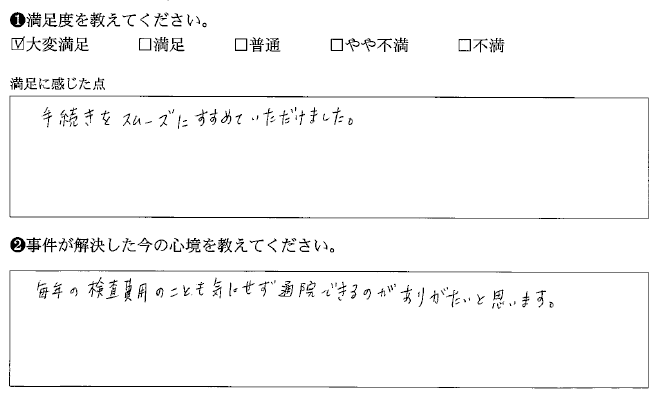 ❶満足度を教えてください。
☑大変満足 □満足 □普通 □やや不満 □不満
満足に感じた点
手続きをスムーズにすすめていただけました。
❷事件が解決した今の心境を教えてください。
毎年の検査費用のことも気にせず通院できるのがありがたいと思います。